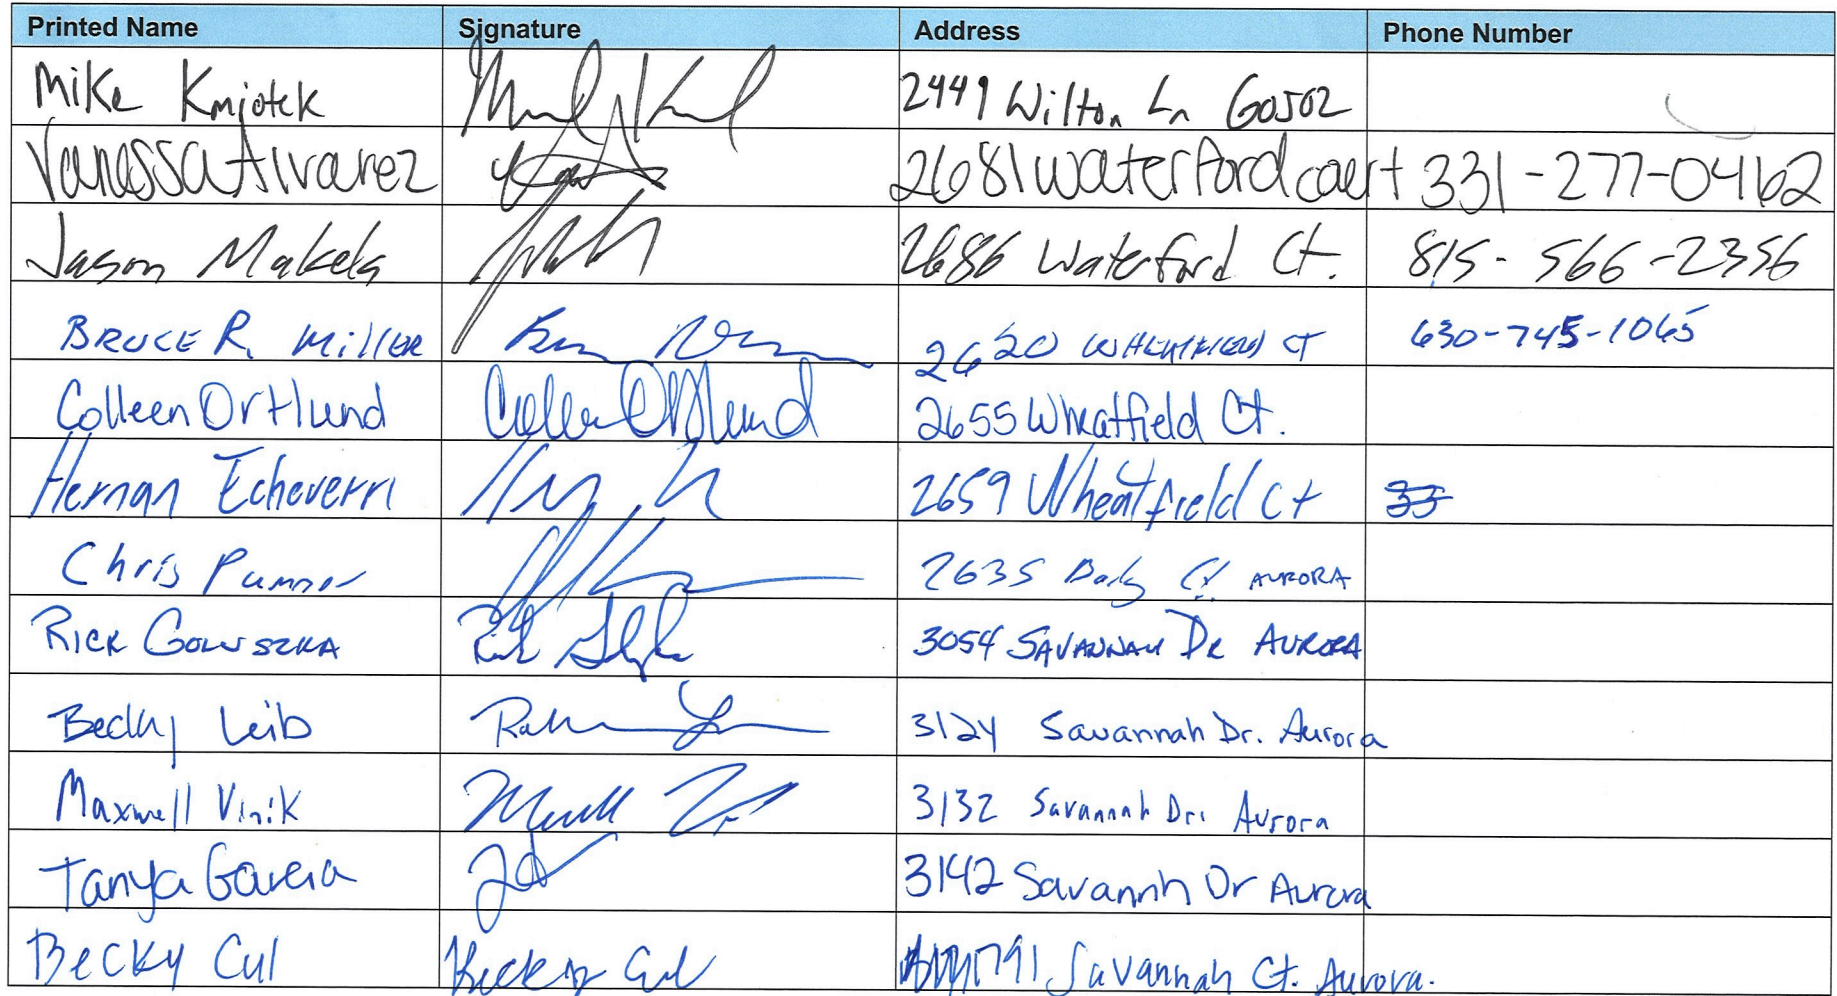 Printed Name Signature Address Phone Number
Mike Kmiotek 2449 Wilton Ln 60502
Vanessa Alvarez 2681 Waterford caert 331-277-0462
Jason Makela 2686 Waterford Ct. 815-566-2356
BRUCE R. MillER 2620 WHEATFIELD CT 630-745-1065
Colleen Ortlund Colleen Ortlund 2655 Wheatfield Ct.
Hernan Echeverri 2659 Wheatfield Ct
Chris 2635 Ct AURORA
RICK GOLUSZKA Rick 3054 SAVANNAH DR AURORA
Becky Leib 3124 Savannah Dr. Aurora
Maxwell Vinik 3132 Savannah Dr. Aurora
Tanya Garcia 3142 Savannh Dr Aurora
Becky Cul Becky Cul 791 Savannah Ct. Aurora.